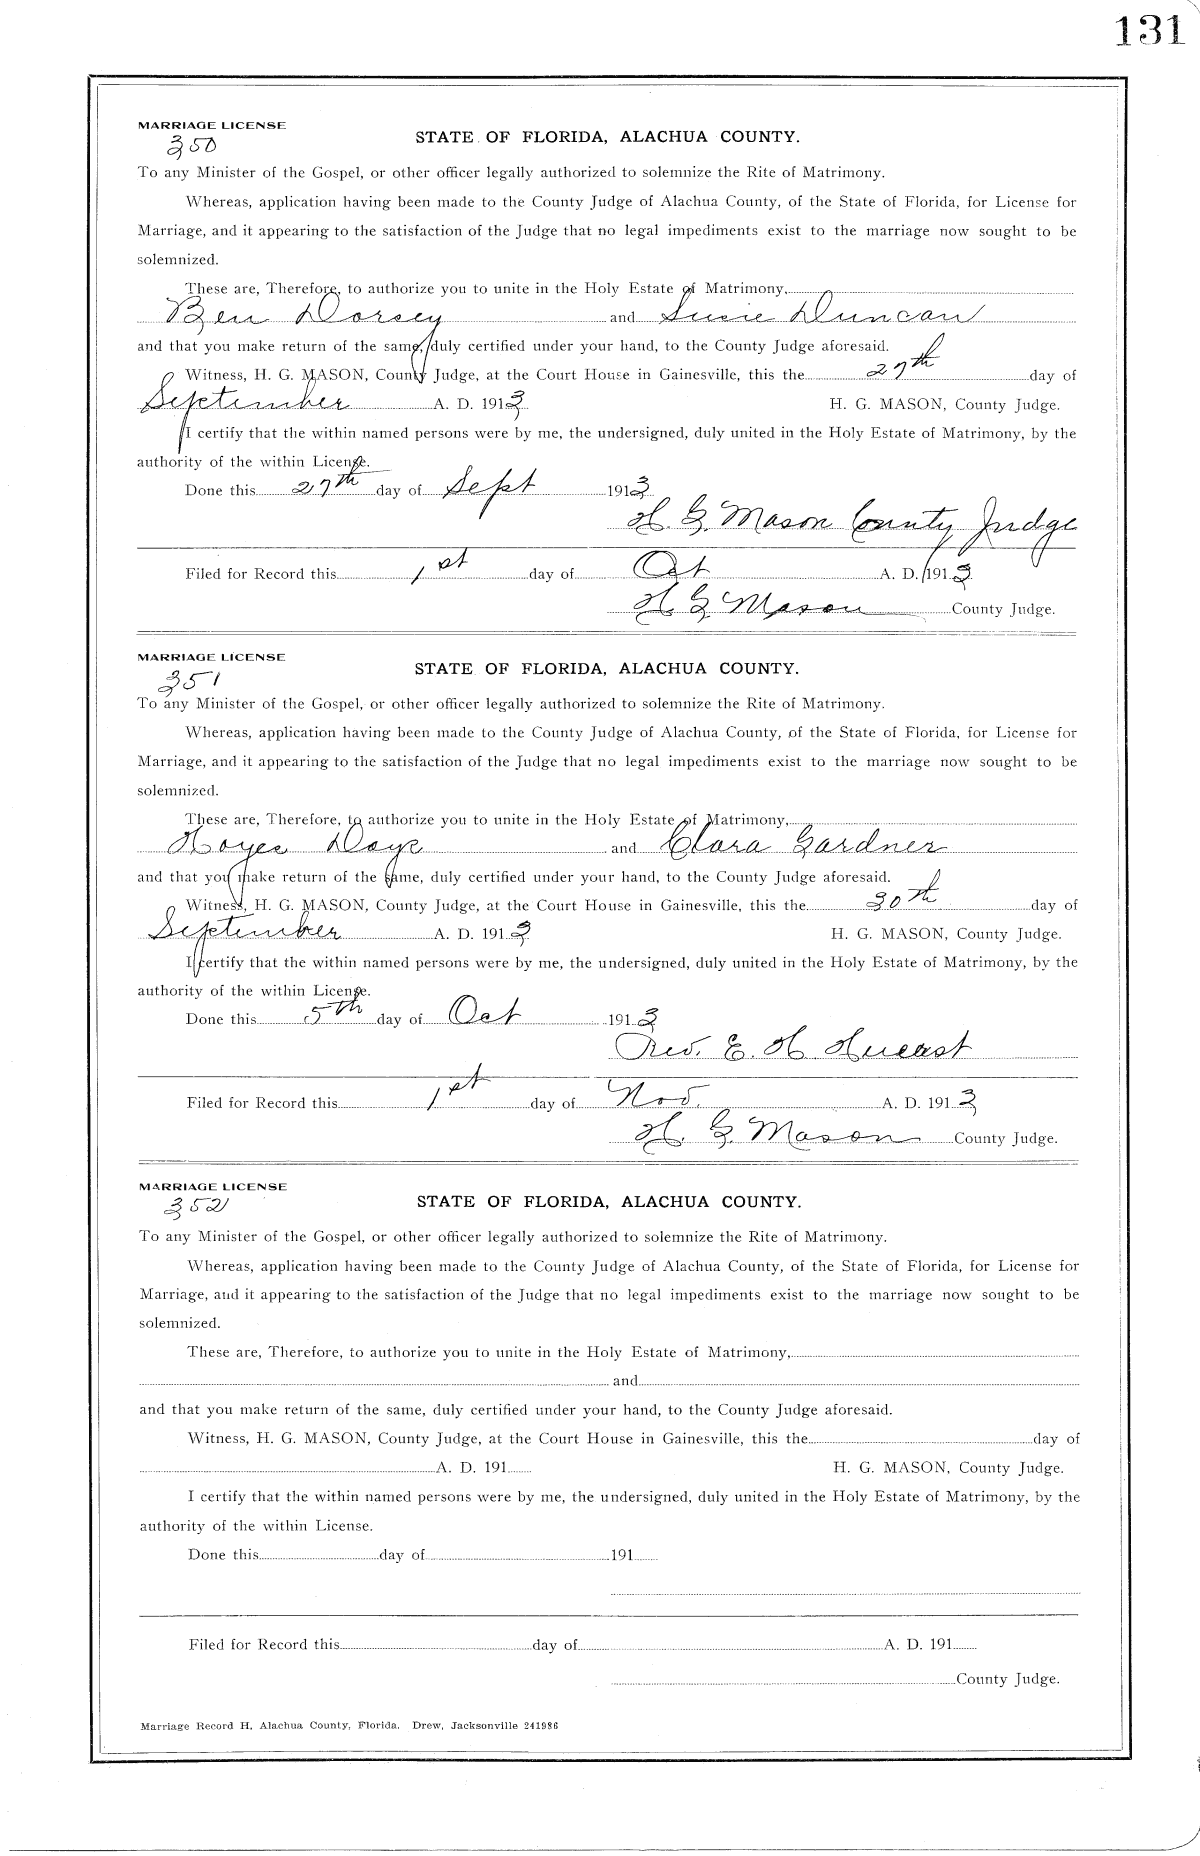 131
MARRIAGE LICENSE
350
STATE OF FLORIDA, ALACHUA COUNTY.
To any Minister of the Gospel, or other officer legally authorized to solemnize the Rite of Matrimony.
Whereas, application having been made to the County Judge of Alachua County, of the State of Florida, for License for
Marriage, and it appearing to the satisfaction of the Judge that no legal impediments exist to the marriage now sought to be
solemnized.
These are, Therefore, to authorize you to unite in the Holy Estate of Matrimony,
Ben Dorsey and Susie Duncan
and that you make return of the same, duly certified under your hand, to the County Judge aforesaid.
Witness, H. G. MASON, County Judge, at the Court House in Gainesville, this the 27th day of
September A. D. 1913 H. G. MASON, County Judge.
I certify that the within named persons were by me, the undersigned, duly united in the Holy Estate of Matrimony, by the
authority of the within License.
Done this 27th day of Sept 1913
H. G. Mason County Judge
Filed for Record this 1st day of Oct A. D. 1913
H G Mason County Judge.
MARRIAGE LICENSE
351
STATE OF FLORIDA, ALACHUA COUNTY.
To any Minister of the Gospel, or other officer legally authorized to solemnize the Rite of Matrimony.
Whereas, application having been made to the County Judge of Alachua County, of the State of Florida, for License for
Marriage, and it appearing to the satisfaction of the Judge that no legal impediments exist to the marriage now sought to be
solemnized.
These are, Therefore, to authorize you to unite in the Holy Estate of Matrimony,
Hayes Daye and Clara Gardner
and that you make return of the same, duly certified under your hand, to the County Judge aforesaid.
Witness, H. G. MASON, County Judge, at the Court House in Gainesville, this the 30th day of
September A. D. 1913 H. G. MASON, County Judge.
I certify that the within named persons were by me, the undersigned, duly united in the Holy Estate of Matrimony, by the
authority of the within License.
Done this 5th day of Oct 1913
Rev. E. H
Filed for Record this 1st day of Nov. A. D. 1913
H. G. Mason County Judge.
MARRIAGE LICENSE
352
STATE OF FLORIDA, ALACHUA COUNTY.
To any Minister of the Gospel, or other officer legally authorized to solemnize the Rite of Matrimony.
Whereas, application having been made to the County Judge of Alachua County, of the State of Florida, for License for
Marriage, and it appearing to the satisfaction of the Judge that no legal impediments exist to the marriage now sought to be
solemnized.
These are, Therefore, to authorize you to unite in the Holy Estate of Matrimony,
and
and that you make return of the same, duly certified under your hand, to the County Judge aforesaid.
Witness, H. G. MASON, County Judge, at the Court House in Gainesville, this the day of
A. D. 191 H. G. MASON, County Judge.
I certify that the within named persons were by me, the undersigned, duly united in the Holy Estate of Matrimony, by the
authority of the within License.
Done this day of 191
Filed for Record this day of A. D. 191
County Judge.
Marriage Record H, Alachua County, Florida. Drew, Jacksonville 241986